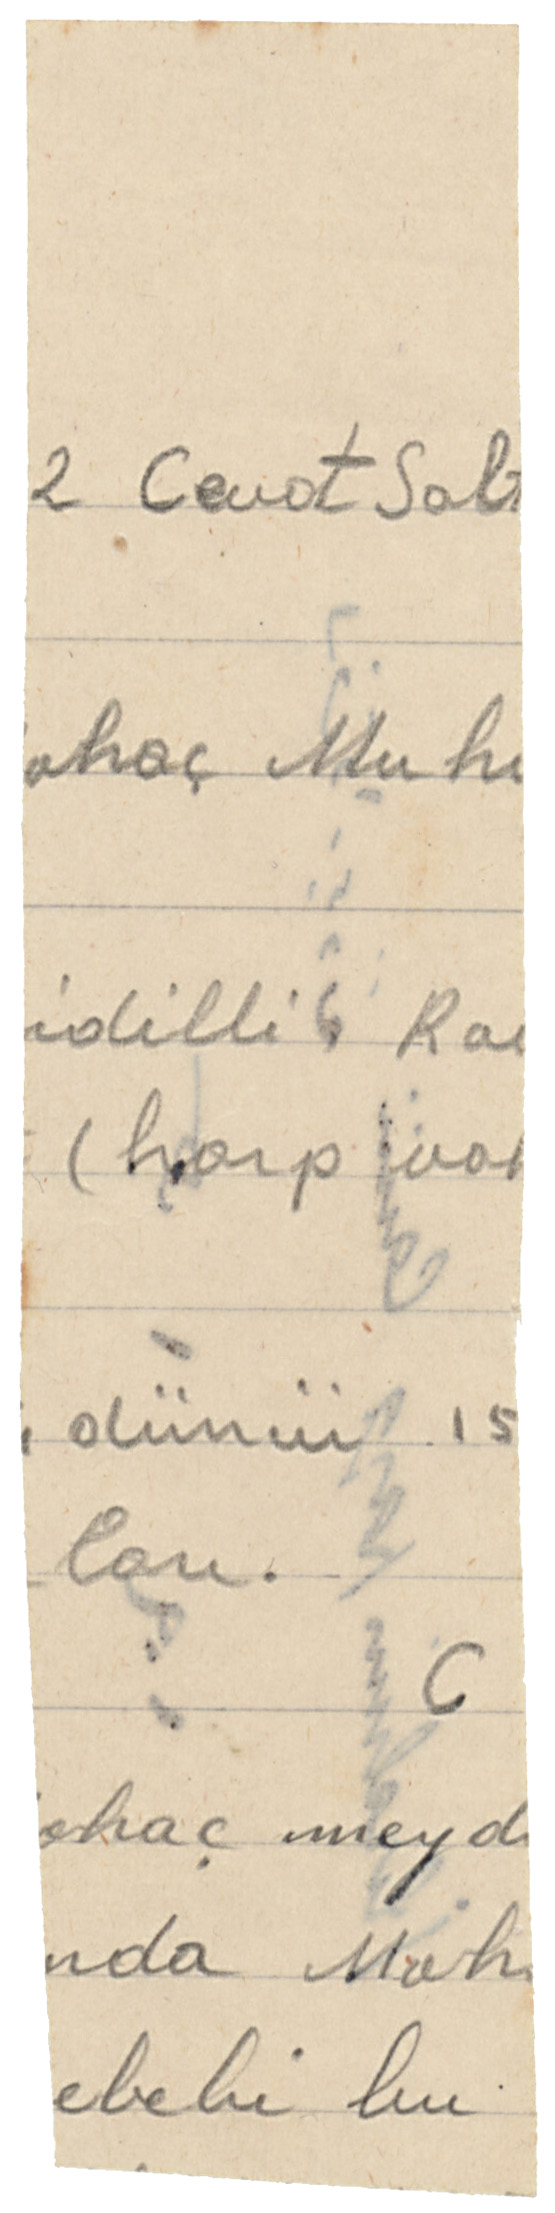 2 Cevat Salt
ohaç Muhu
idilli Ra
(harp va
dünüü 15
lan.
C
ohaç meyd
nda Moh
ebebi bu